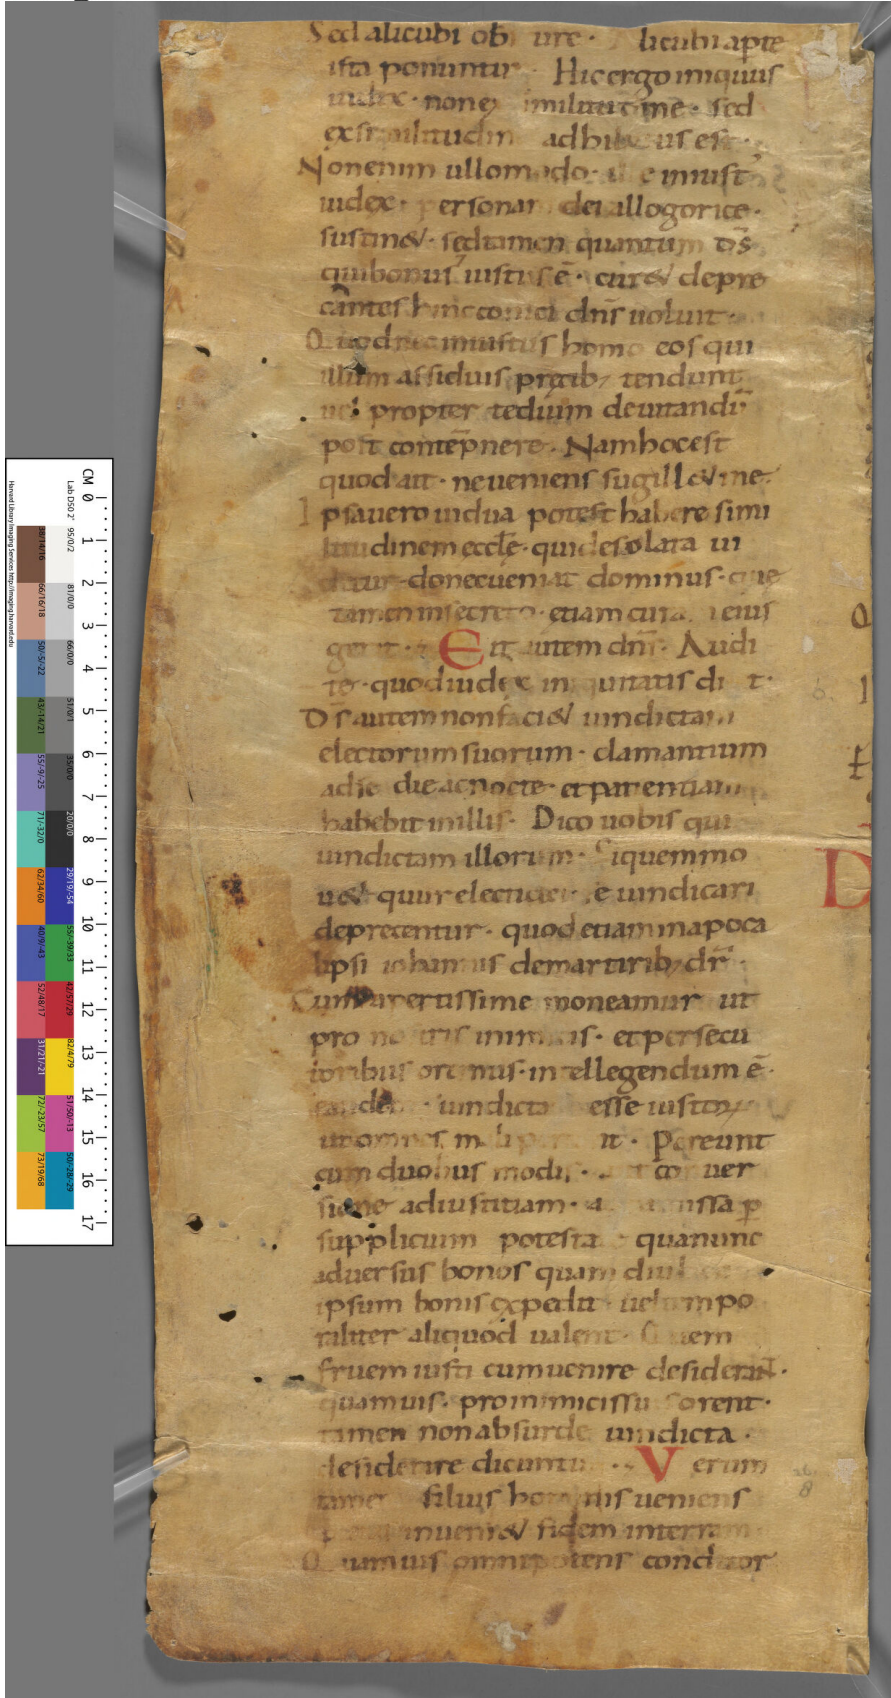 Sed alicubi ob ure · licubi apte
ista ponuntur · Hic ergo iniquus
iudex · non ex similitudine · sed
ex similitudin adhib us est ·
Non enim ullomodo · ill e iniust'
iudex · personam dei allogorice ·
sustinet · sed tamen quantum d̄s
qui bonus et iustus ē · curet depre
cantes hinc conici dn̄s uoluit ·
Quod nec iniustus homo eos qui
illum assiduis precib; tendunt
uel propter tedium deuitandū
post contēpnere · Nam hoc est
quod ait · ne ueniens sugillet me ·
Ipsa uero uidua potest habere simi
litudinem eccl̄e · qui desolata ui
detur · donec ueniat dominus · que
tamen in secreto · etiam cura eius
gerit · Ait autem dn̄s · Audi
te · quod iudex iniquitatis di t ·
D̄s autem non faciet uindictam
electorum suorum · clamantium
ad se die ac nocte · et patientiam
habebit in illis · Dico uobis qui
uindictam illorum · Si quem mo
uet · quur electi dei se uindicari
deprecentur · quod etiam in apoca
lipsi iohannis de martirib; dr̄ ·
Cum apertissime moneamur ut
pro nostris inimicis · et persecu
toribus oremus · intellegendum ē ·
eandem uindicta esse iustorum
ut omnes mali per nt · Pereunt
cum duobus modis · aut conuer
sione ad iustitiam · a missa p̱
supplicium potesta qua nunc
aduersus bonos quamdiu
ipsum bonis expedit · uel tempo
raliter aliquod ualent · finem
fruem iusti cum uenire desiderent ·
quamuis · pro inimicis su orent ·
tamen non absurde uindicta ·
desiderare dicuntu · Verum
tame filius hominis ueniens
puta inueniet fidem in terram ·
Quamuis omnipotens conditor